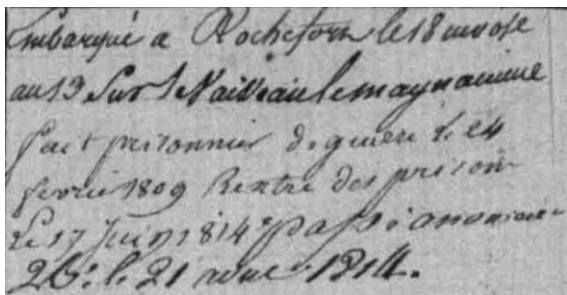 Embarqué a Rochefort le 18 nivose
an 13 Sur le Vaisseau le magnanime
fait prisonnier de guerre le 24
fevrier 1809 Rentré des prisons
Le 17 Juin 1814 passé au
26e. le 21 1814.